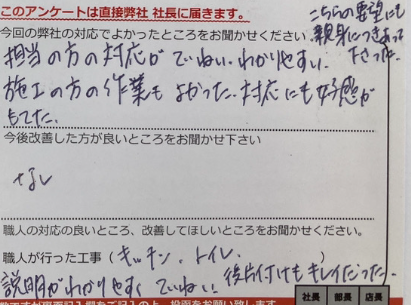 このアンケートは直接弊社 社長に届きます。
今回の弊社の対応でよかったところをお聞かせください
こちらの要望にも
親身につきあって
下さった。
担当の方の対応がていねい。わかりやすい。
施工の方の作業もよかった。対応にも好感が
もてた。
今後改善した方が良いところをお聞かせ下さい
なし
職人の対応の良いところ、改善してほしいところをお聞かせください。
職人が行った工事(キッチン、トイレ
説明がわかりやすく ていねい。後片付けもキレイだった。
社長 部長 店長